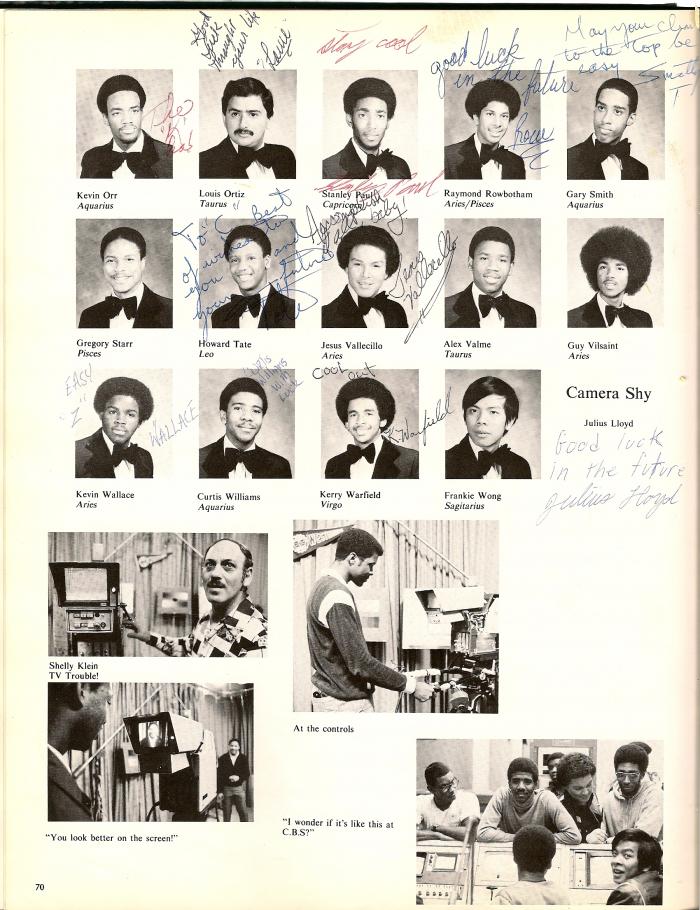 Good
Luck
throught
your life
Louie
stay cool
good luck
in the future
May your climb
to the top be
easy
Smith
The
Kevin Orr
Aquarius
Louis Ortiz
Taurus
Stanley Paul
Capricorn
Stanley Paul
Raymond Rowbotham
Aries/Pisces
Gary Smith
Aquarius
To "C" Best
of wishes to
you and
your future
Tate
baby!
Jesus
Vallecillo
Gregory Starr
Pisces
Howard Tate
Leo
Jesus Vallecillo
Aries
Alex Valme
Taurus
Guy Vilsaint
Aries
EASY
"Z"
WALLACE
Curtis
Williams
Luck
COOL
out
K. Warfield
Camera Shy
Julius Lloyd
Good luck
in the future
Julius Lloyd
Kevin Wallace
Aries
Curtis Williams
Aquarius
Kerry Warfield
Virgo
Frankie Wong
Sagitarius
Shelly Klein
TV Trouble!
At the controls
"You look better on the screen!"
"I wonder if it's like this at
C.B.S?"
70